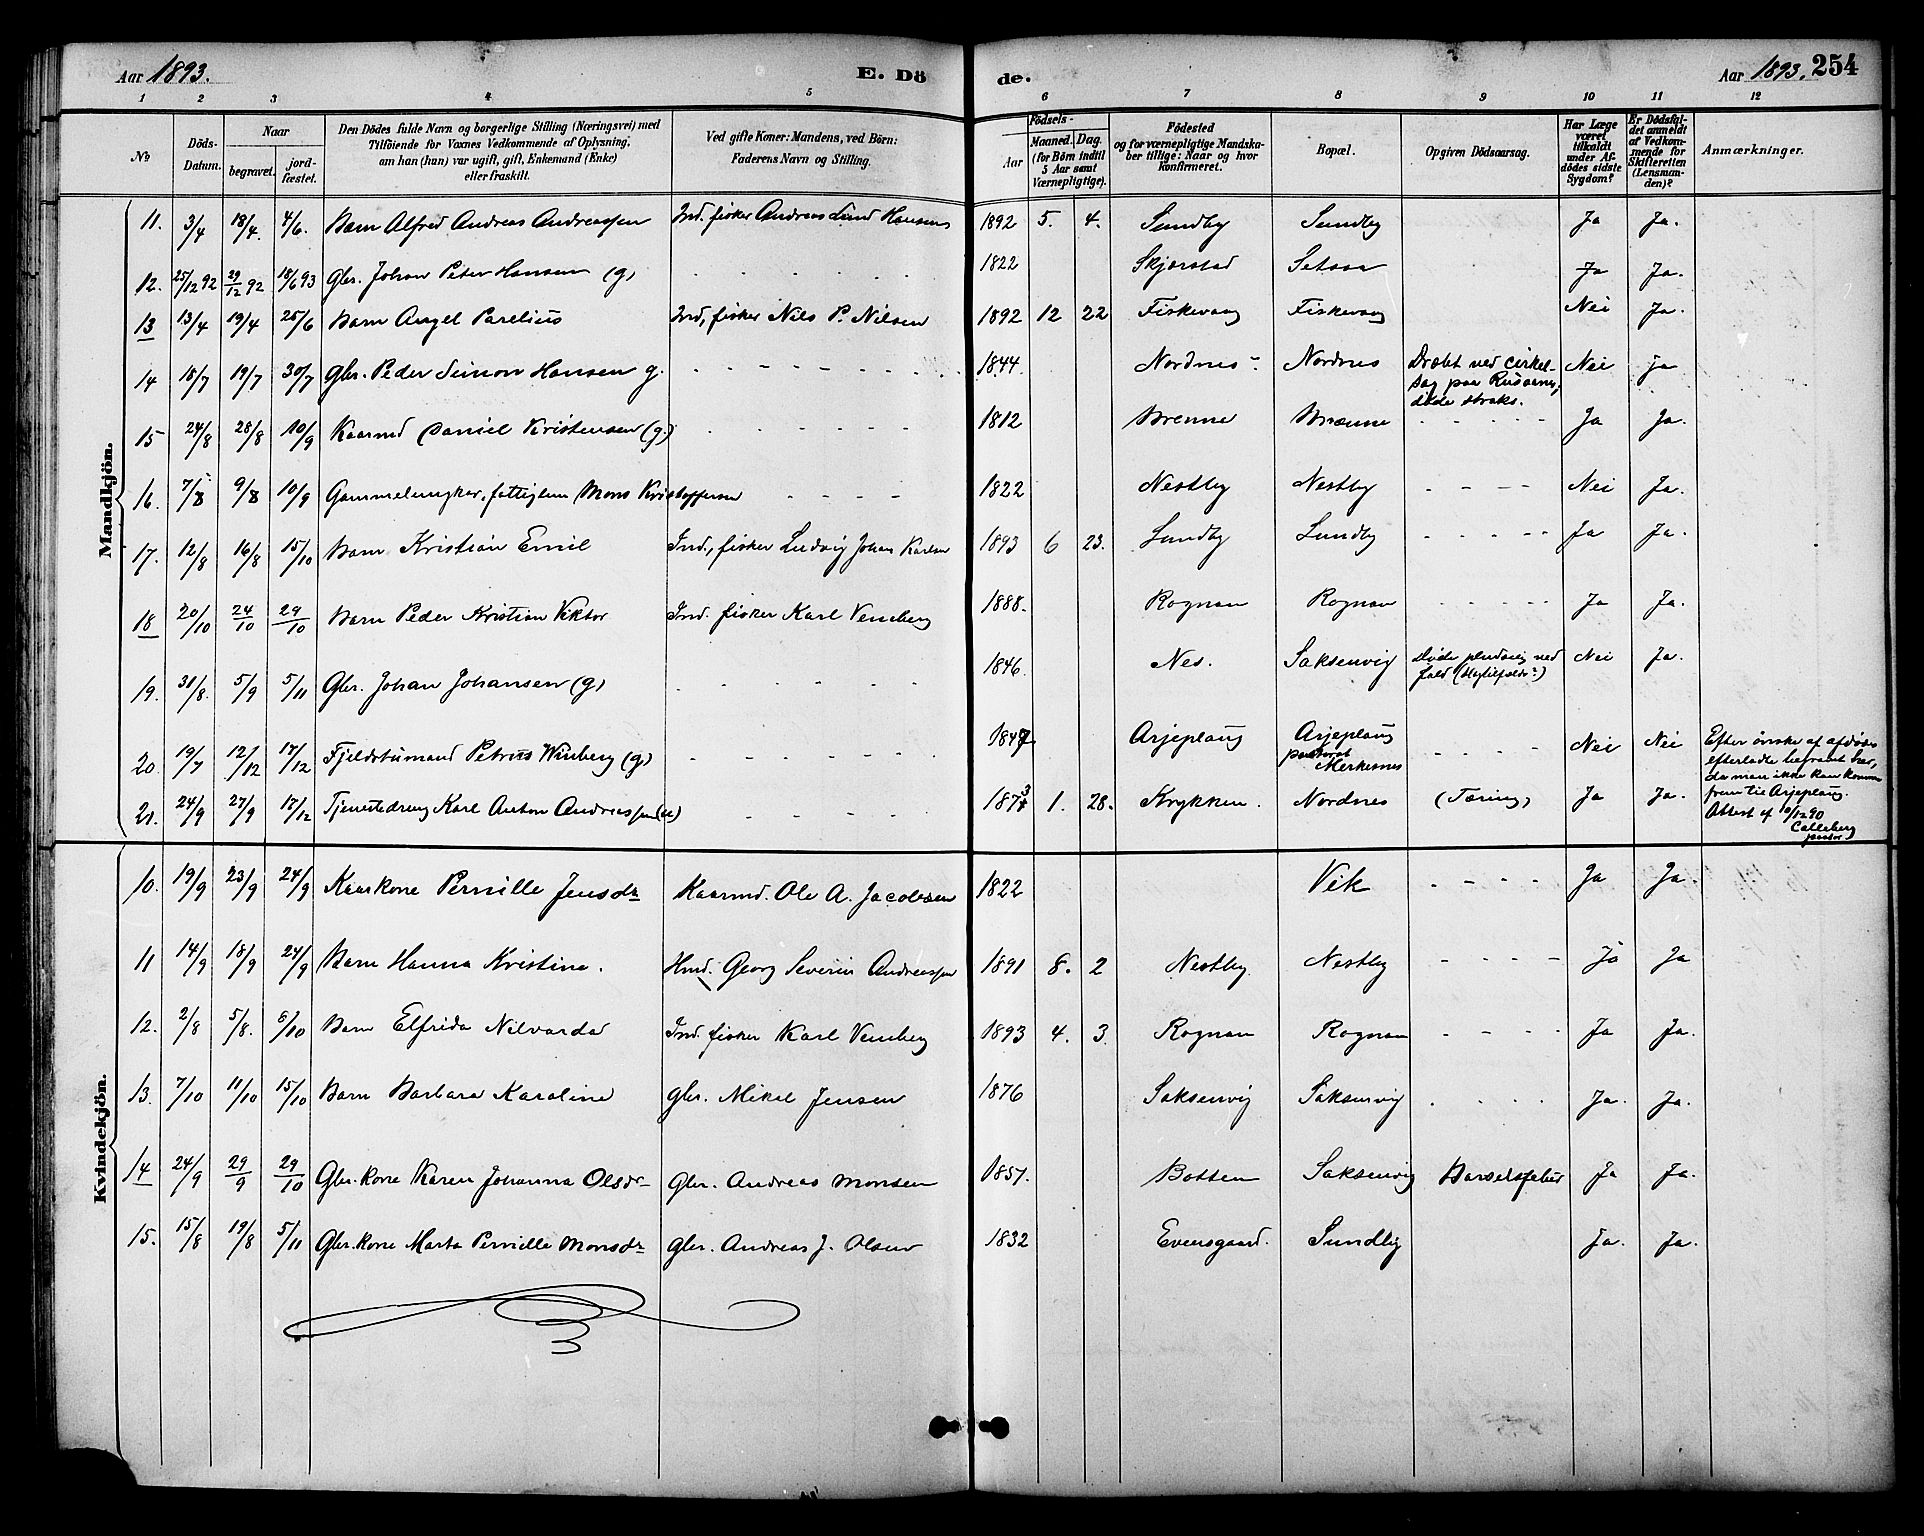 Aar 1893. E. Dö de. Aar 1893. 254
1 2 3 4 5 6 7 8 9 10 11 12
No Döds-Datum. Naar begravet. jord-fæstet. Den Dödes fulde Navn og borgerlige Stilling (Næringsvei) med Tilföiende for Voxnes Vedkommende af Oplysning, om han (hun) var ugift, gift, Enkemand (Enke) eller fraskilt. Ved gifte Koner: Mandens, ved Börn: Faderens Navn og Stilling. Födsels- Aar Maaned. Dag. (for Börn indtil 5 Aar samt Værnepligtige). Födested og for værnepligtige Mandskaber tillige: Naar og hvor Konfirmeret. Bopæl. Opgiven Dödsaarsag. Har Læge været tilkaldt under Afdödes sidste Sygdom? Er Dödsfaldet anmeldt af Vedkommende for Skifteretten (Lensmanden)? Anmærkninger.
Mandkjön.
11. 3/4 18/4. 4/6. Barn Alfred Andreas Andreassen Ind. fisker Andreas Lund Hansens 1892 5. 4. Sundby Sundby Ja Ja.
12. 25/12 92 29/12 92 18/6 93 Gbr. Johan Peter Hansen (g) 1822 Skjerstad Setsaa Ja Ja.
13 13/4 19/4 25/6 Barn Angel Parelius Ind, fisker Nils P. Nilsen 1892 12 22 Fiskevaag Fiskevaag Nei Ja.
14 18/7 19/7 30/7 Gbr. Peder Simon Hansen g. 1844 Nordnes Nordnes Dræbt ved Cirkel-sag paa Rusaanes, døde straks. Nei Ja
15 24/8 28/8 10/9 Kaarmd Daniel Kristensen (g.) 1812 Brenne Brænne Ja Ja.
16. 7/8 9/8 10/9 Gammelungkar, fattiglem Mons Kristoffersen 1822 Nestby Nestby Nei Ja.
17. 12/8 16/8 15/10 Barn Kristian Emil Ind., fisker Ludvig Johan Karlsen 1893 6 23. Sundby Sundby Ja Ja.
18 20/10 24/10 29/10 Barn Peder Kristian Viktor Ind. fisker Karl Venberg 1888. Rognan Rognan Ja Ja.
19. 31/8. 5/9 5/11 Gbr. Johan Johansen (g) 1846 Nes. Saksenvig Døde pludselig ved fald Nei Ja.
20. 19/7 12/12 17/12 Petrus Winberg (g) 1847 Arjeplaug Arjeplaug pastorat Merkesnes Nei Nei Efter ønske af afdødes efterladte begravet her, da man ikke kan komme frem til Arjeplaug. Attest af 10/12 90 Calleberg pastor
21. 24/9 27/9 17/12 Tjenestedreng Karl Anton Andreassen (u) 1873 1. 28. Krykken. Nordnes (Tæring) Ja Ja.
Kvindekjön.
10. 19/9 23/9 24/9 Kaarkone Pernille Jensdr Kaarmd. Ole A. Jacobsen 1822 Vik Ja Ja.
11 14/9 18/9 24/9 Barn Hanna Kristine. Hmd. Georg Severin Andreassen 1891 8. 2 Nestby. Nestby Ja Ja
12. 2/8 5/8. 8/10 Barn Elfrida Nilvarda Ind. fisker Karl Venberg 1893 4. 3. Rognan Rognan Ja Ja.
13. 7/10 11/10 15/10 Barn Barbara Karoline gbr. Mikal Jensen 1876 Saksenvig Saksenvig Ja. Ja.
14 24/9 29/9 29/10 Gbr. kone Karen Johanna Olsdr Gbr. Andreas Monsen 1857. Botten Saksenvig Barselsfeber Ja Ja.
15. 15/8 19/8 5/11 Gbr. kone Marta Pernille Monsdr gbr. Andreas J. Olsen 1832 Evensgaard. Sundby Ja. Ja.